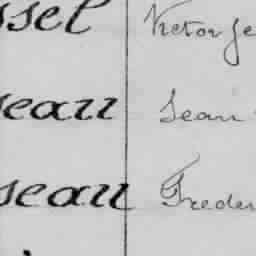 ssel Victor Je
seau Jean
seau Freder